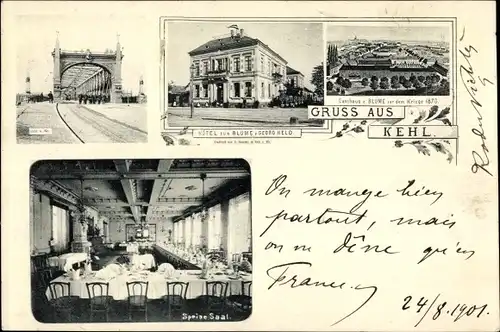 Gasthaus z. BLUME vor dem Kriege 1870.
GRUSS AUS
KEHL.
HÔTEL ZUR BLUME, GEORG HELD.
Speise Saal.
On mange bien
partout, mais
on ne dîne qu'en
France,
24/8.1901.